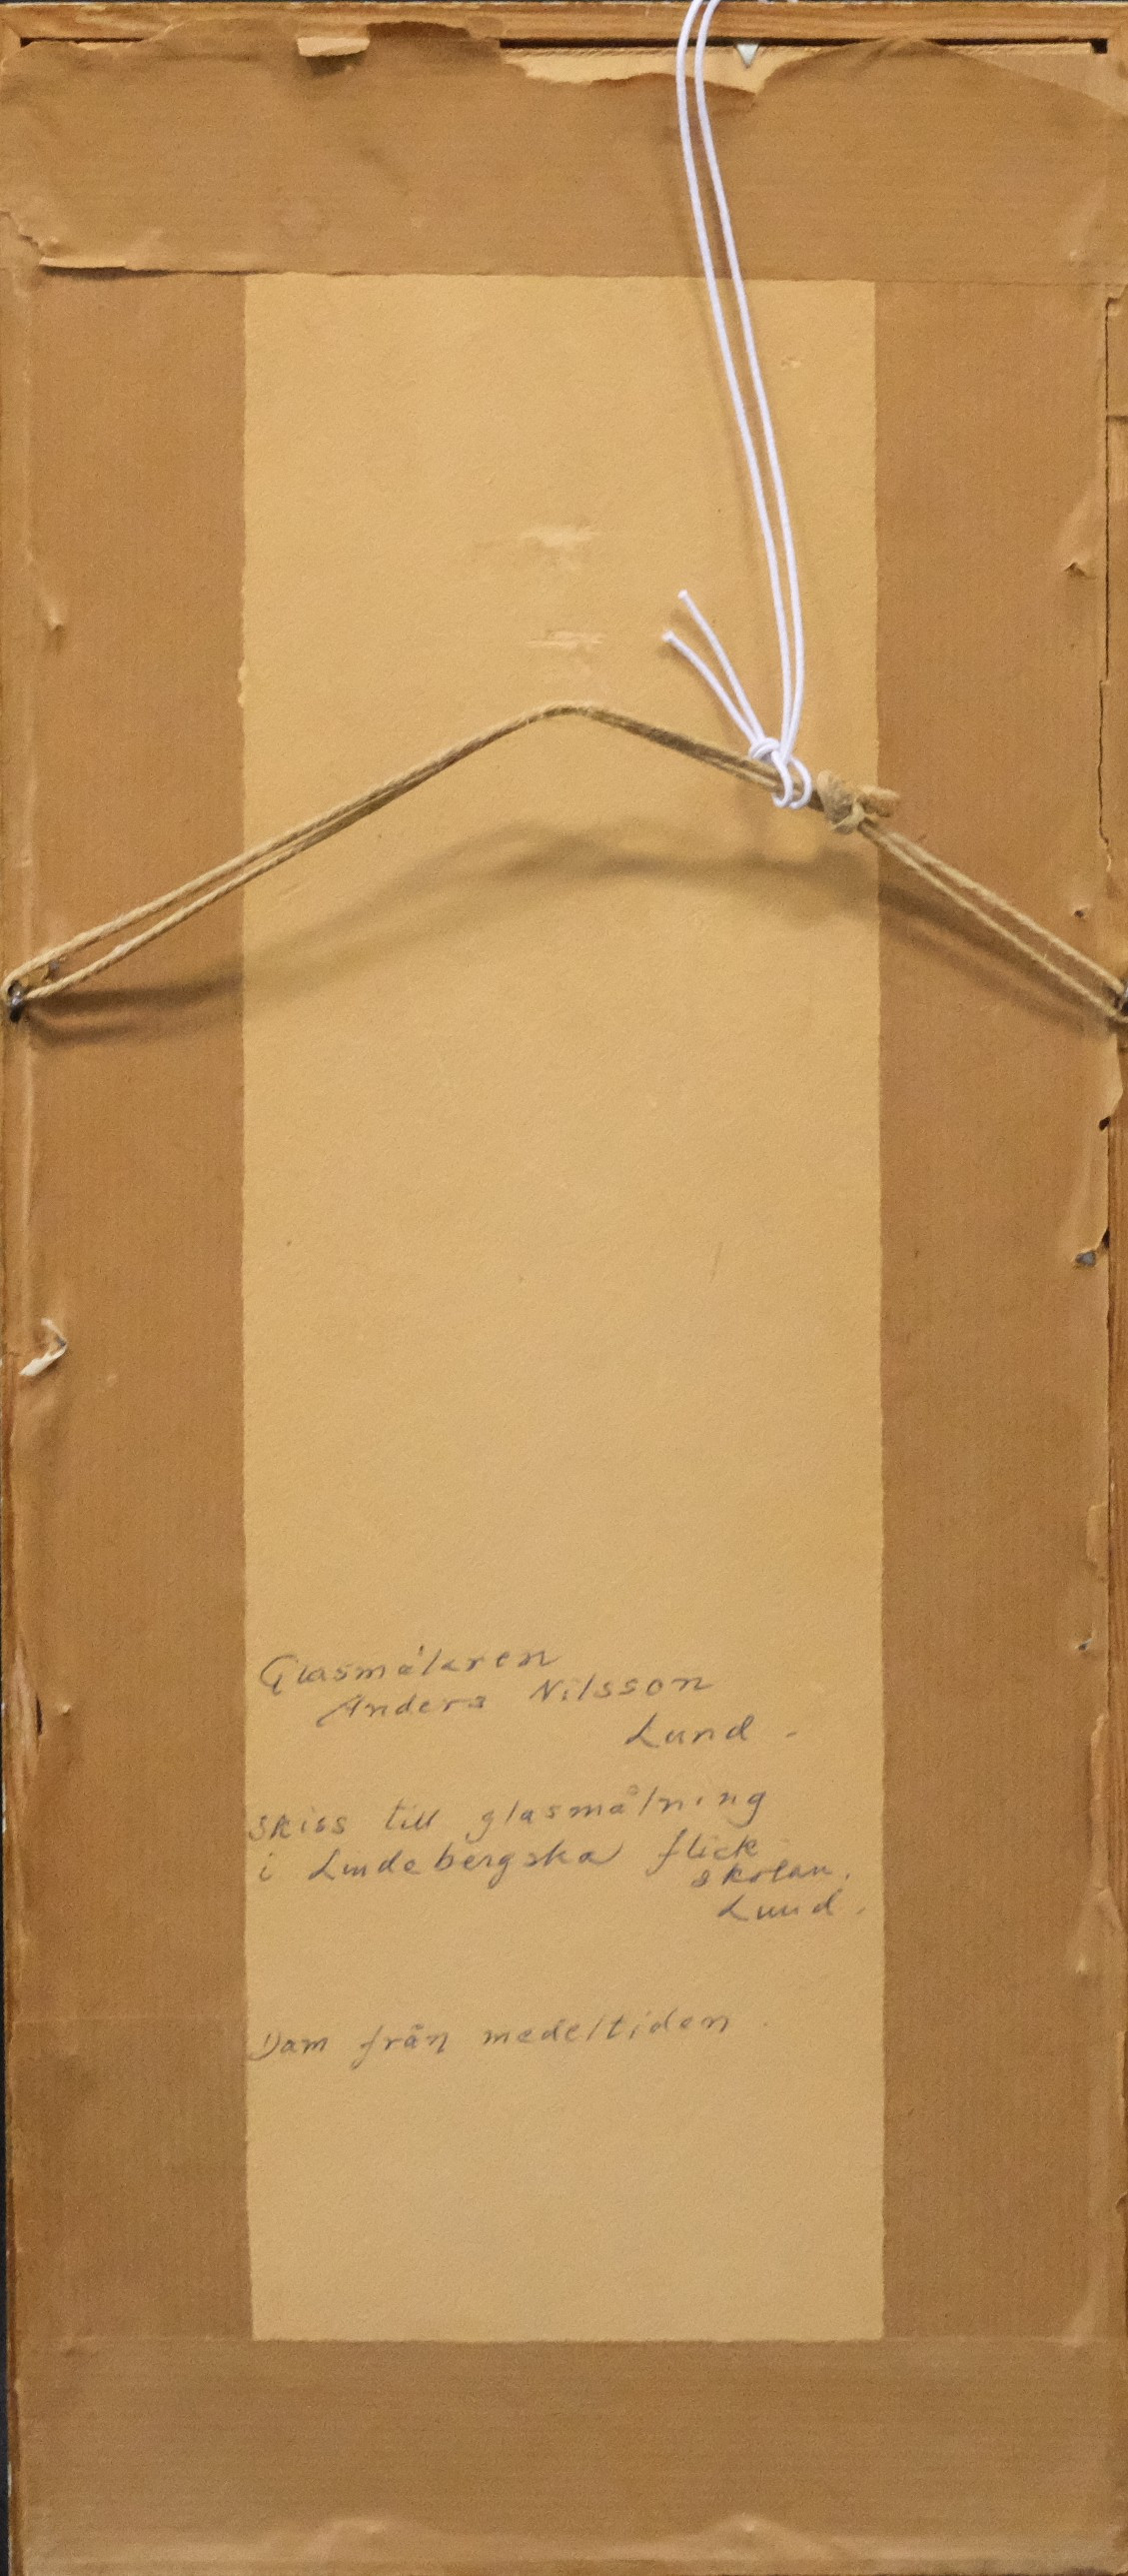 Glasmålaren
Anders Nilsson
Lund -
Skiss till glasmålning
i Lindebergska flick
skolan.
Lund.
Dam från medeltiden.